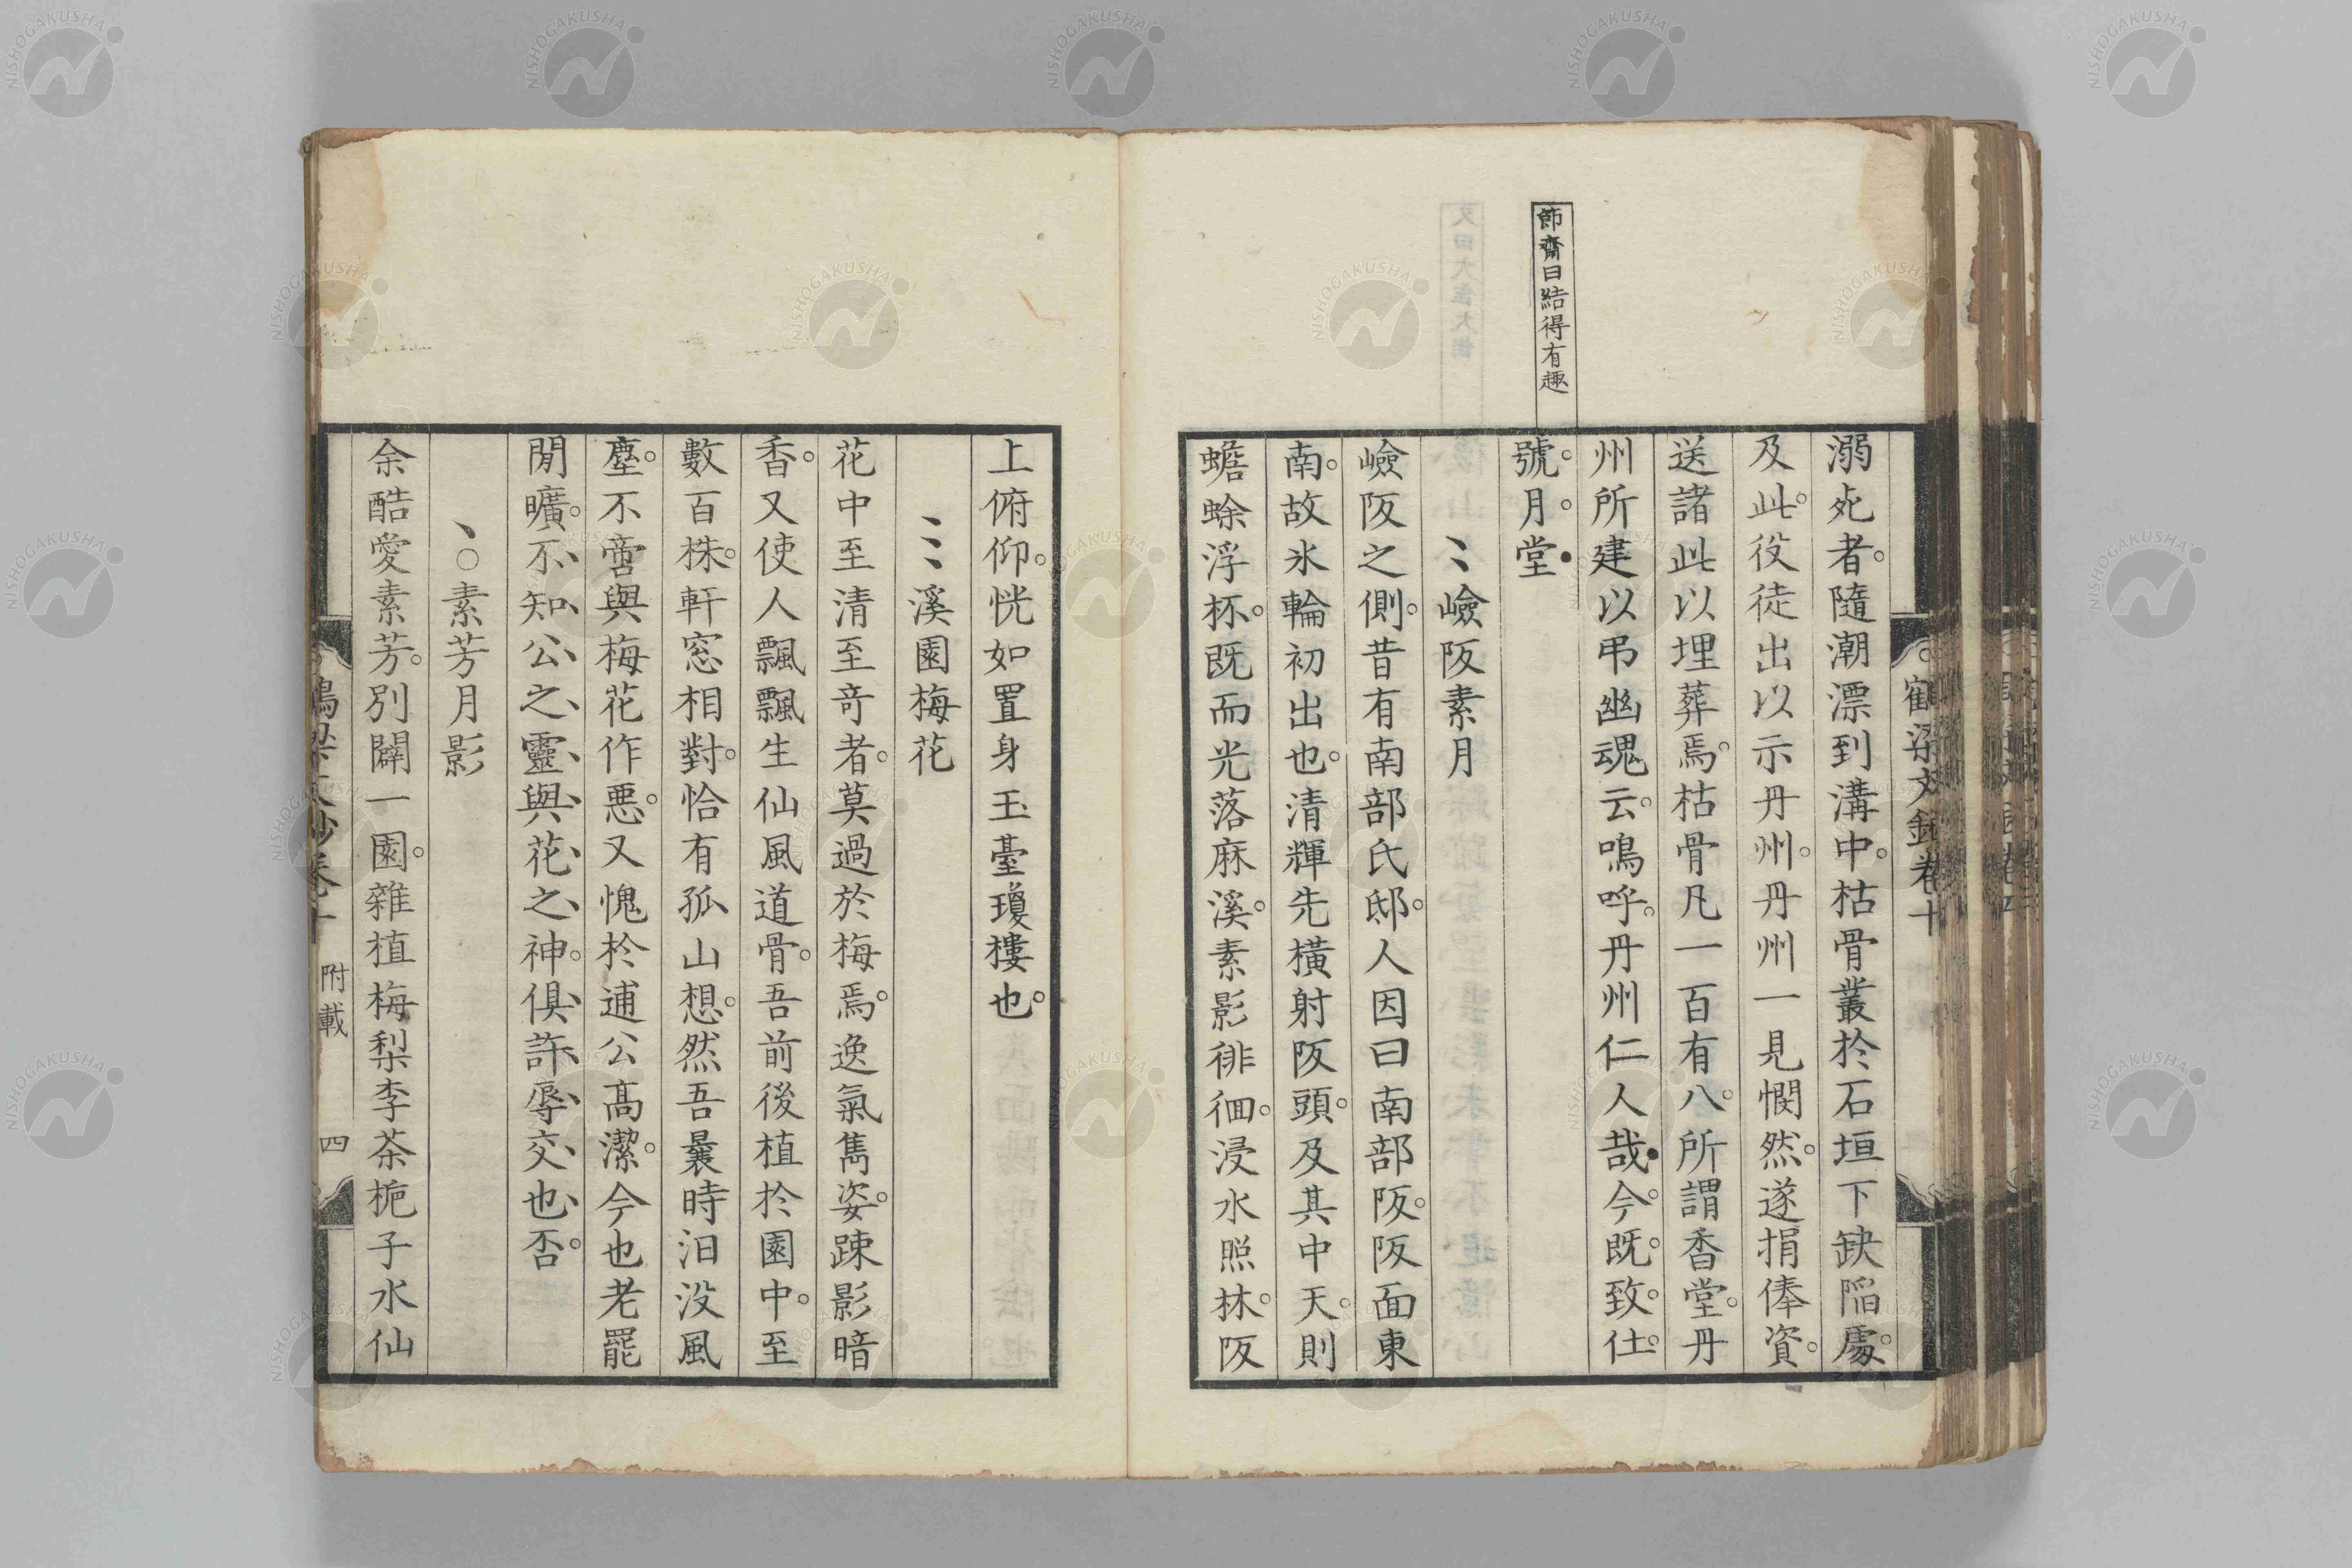 節齋曰結得有趣
溺死者。隨潮漂到溝中。枯骨叢於石垣下缺陷處。
及此。役徒出以示丹州。丹州一見憫然。遂捐俸資。
送諸此以埋葬焉。枯骨凡一百有八。所謂香堂。丹
州所建以弔幽魂云。嗚呼。丹州仁人哉。今既致仕。
號月堂
嶮阪素月
嶮阪之側。昔有南部氏邸。人因曰南部阪。阪面東
南。故氷輪初出也。清輝先橫射阪頭。及其中天。則
蟾蜍浮杯。既而光落麻溪。素影徘徊。浸水照林。阪
上俯仰。恍如置身玉臺瓊樓也。
溪園梅花
花中至清至奇者。莫過於梅焉。逸氣雋姿。踈影暗
香。又使人飄飄生仙風道骨。吾前後植於園中。至
數百株。軒窓相對。恰有孤山想。然吾曩時汩没風
塵。不啻與梅花作惡。又愧於逋公高潔。今也老罷
閒曠。不知公之靈與花之神。俱許辱交也否。
素芳月影
余酷愛素芳。別闢一園。雜植梅梨李茶梔子水仙
鶴梁文鈔卷十 附載 四